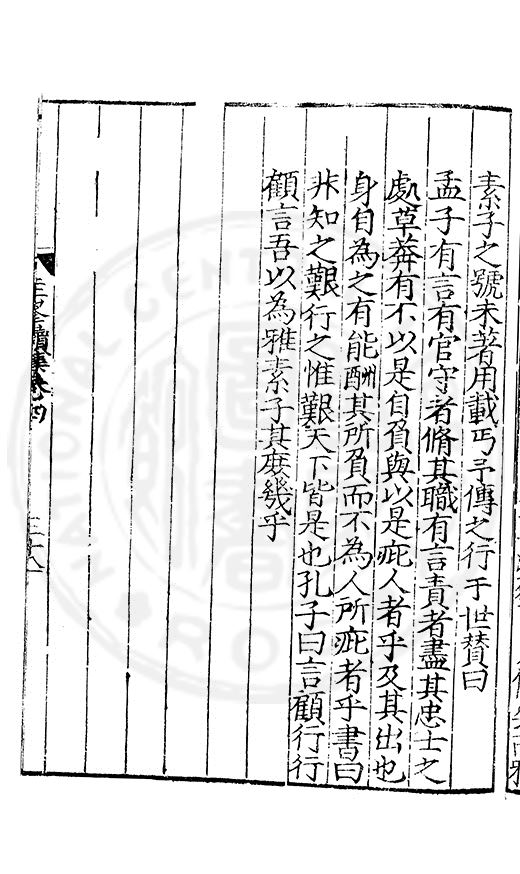 素子之號未著用載丐予傳之行于世贊曰
孟子有言有官守者脩其職有言責者盡其忠士之
處草莽有不以是自負與以是疵人者乎及其出也
身自為之有能酬其所負而不為人所疵者乎書曰
非知之艱行之惟艱天下皆是也孔子曰言顧行行
顧言吾以為雅素子其庶幾乎
續集卷四
三十八